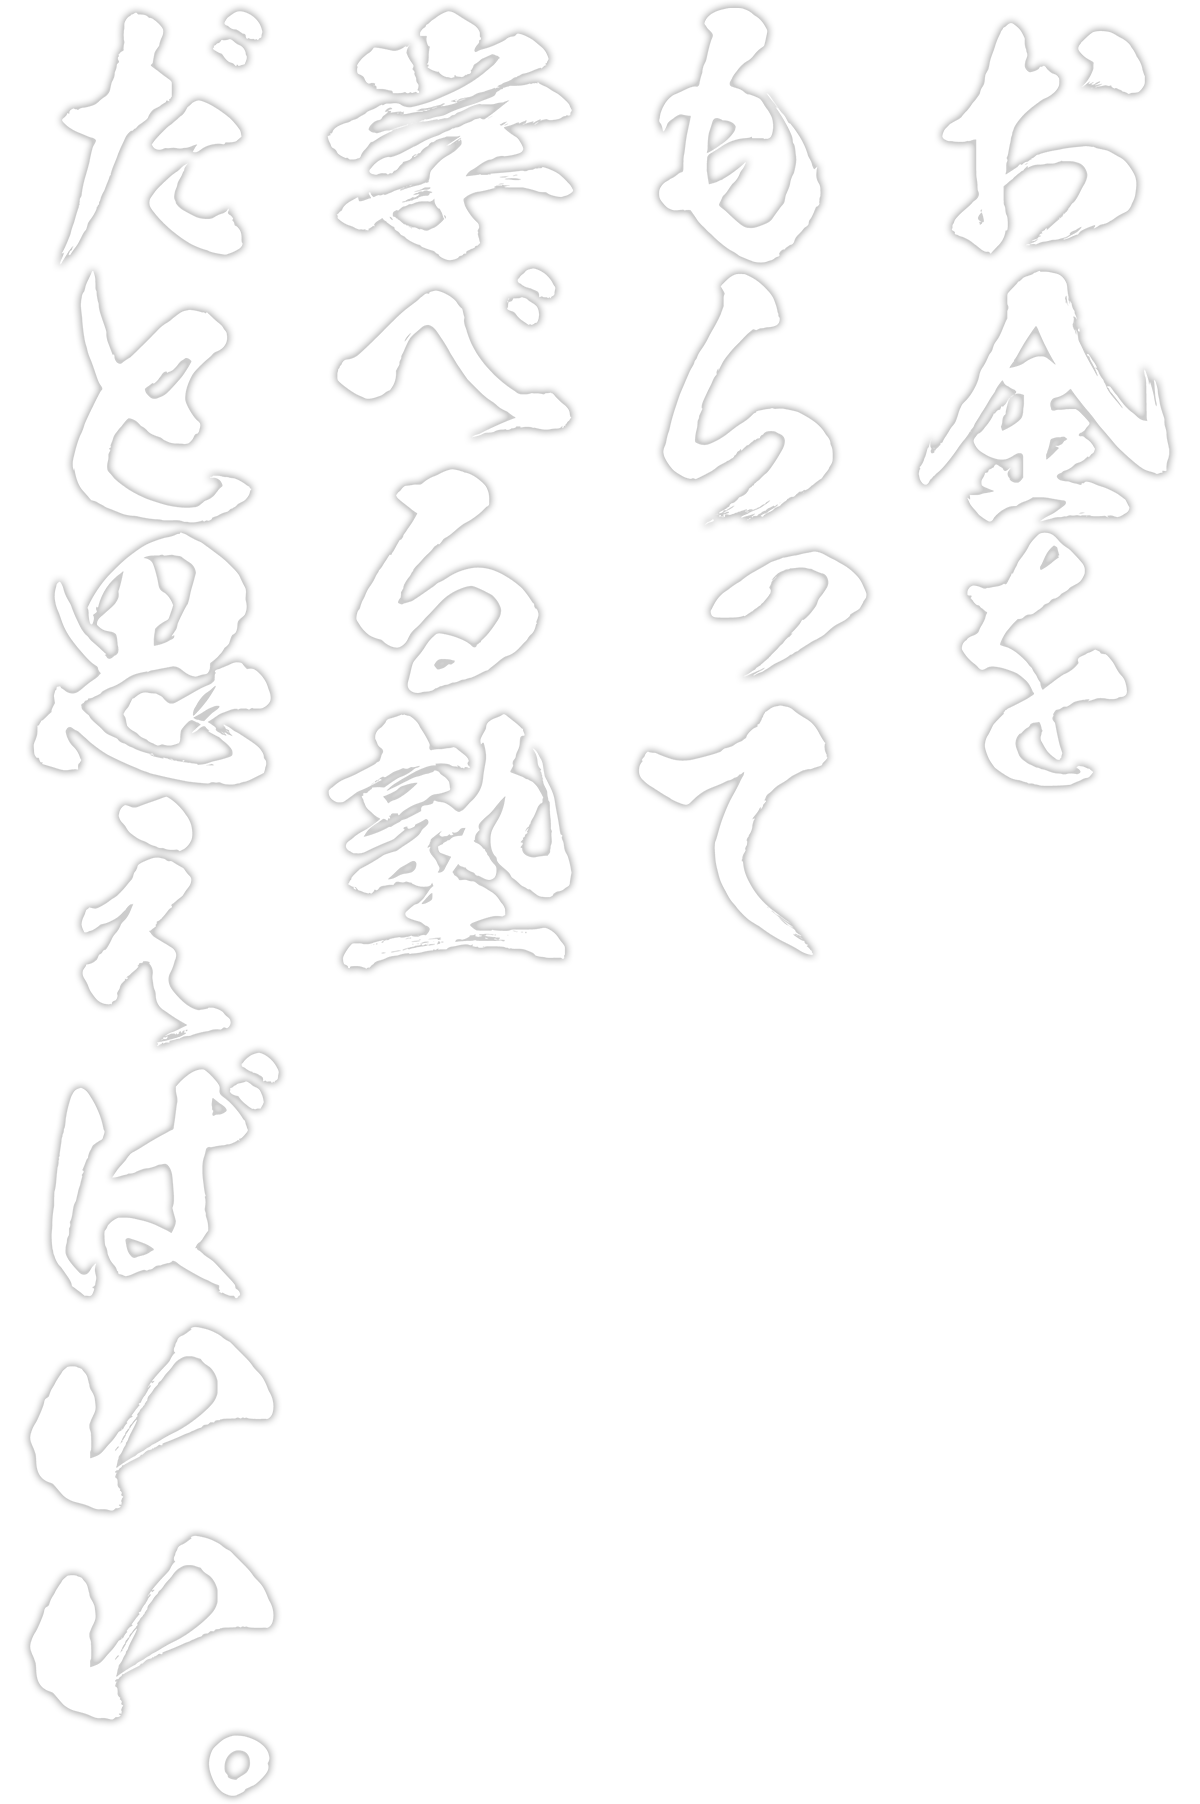 お金を
もらって
学べる塾
だと思えばいい。